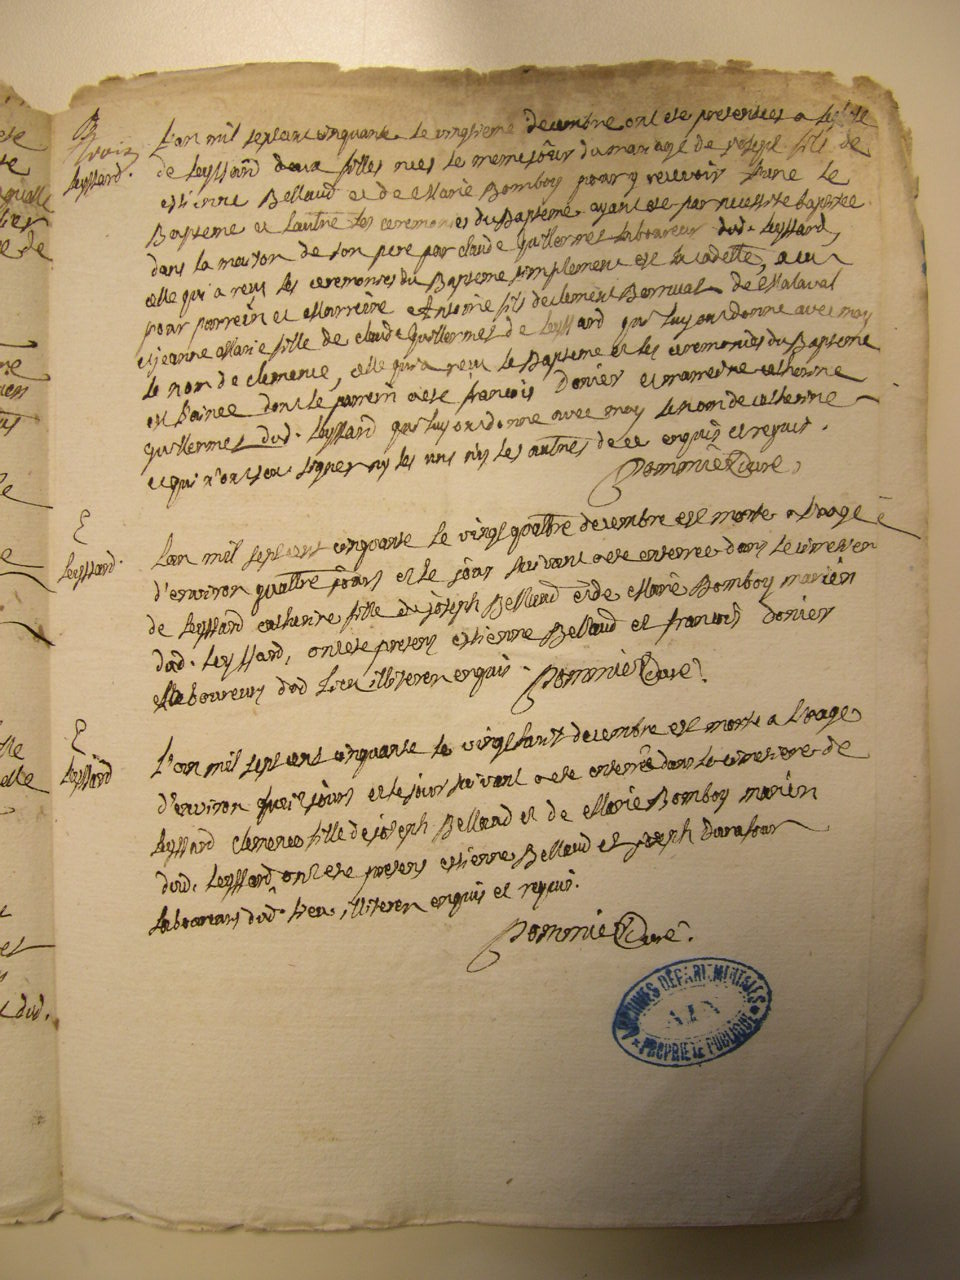 B
Leyssard.
L'an mil sept cent cinquante le vingtieme decembre ont ete presentées a
de Leyssard deux filles nées le meme jour du mariage de joseph fils de
estienne Bellaud et de Marie Bomboy pour y recevoir l'une le
Bapteme et l'autre les ceremonies du Bapteme ayant ete par necessite baptisee
dans la maison de son pere par claude Guillermet laboureur dud. Leyssard,
celle qui a reçu les ceremonies du Bapteme simplement est la cadette, a eu
pour parrein et Marreine Antoine fils de clement de Malaval
et jeanne Marie fille de claude Guillermet de Leyssard qui luy ont donne avec moy
le nom de clemence, celle qui a reçu le Bapteme et les ceremonies du Bapteme
est l'ainée dont le parrein a ete françois Donier et marreine catherine
Guillermet dud. Leyssard qui luy ont donne avec moy le nom de catherine
et qui n'ont sçu signer ny les uns ny les autres de ce enquis et requis.
Pommié Curé
Leyssard.
L'an mil sept cent cinquante le vingt quattre decembre est morte a l'aage
d'environ quattre jours et le jour suivant a ete enterrée dans le cimetier
de Leyssard catherine fille de joseph Bellaud et de Marie Bomboy mariés
dud. Leyssard, ont ete presens estienne Bellaud et françois Donier
laboureurs dud lieu illiteres enquis. Pommié Curé.
Leyssard
L'an mil sept cent cinquante le vingt huit decembre est morte a l'aage
d'environ jours et le jour suivant a ete enterrée dans le cimetiere de
Leyssard clemence fille de joseph Bellaud et de Marie Bomboy mariés
dud. Leyssard, ont ete presens estienne Bellaud et joseph Durafour
laboureurs dud. lieu illiteres enquis et requis.
Pommié Curé.
ARCHIVES DÉPARTEMENTALES
AIN
PROPRIÉTÉ PUBLIQUE
dud.